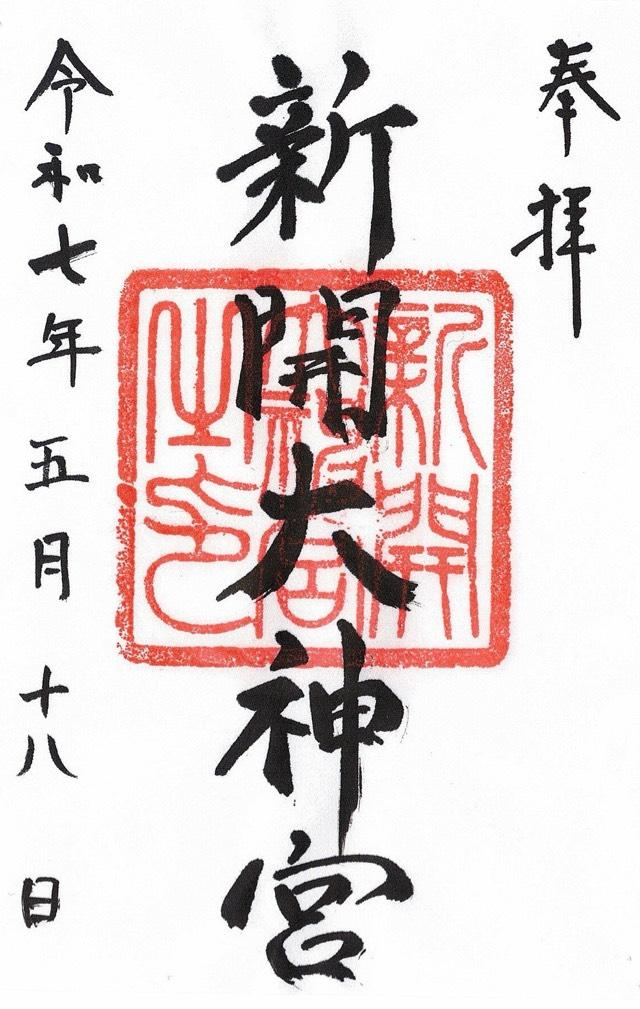 奉拝
新開大神宮
新開大神宮之印
令和七年五月十八日